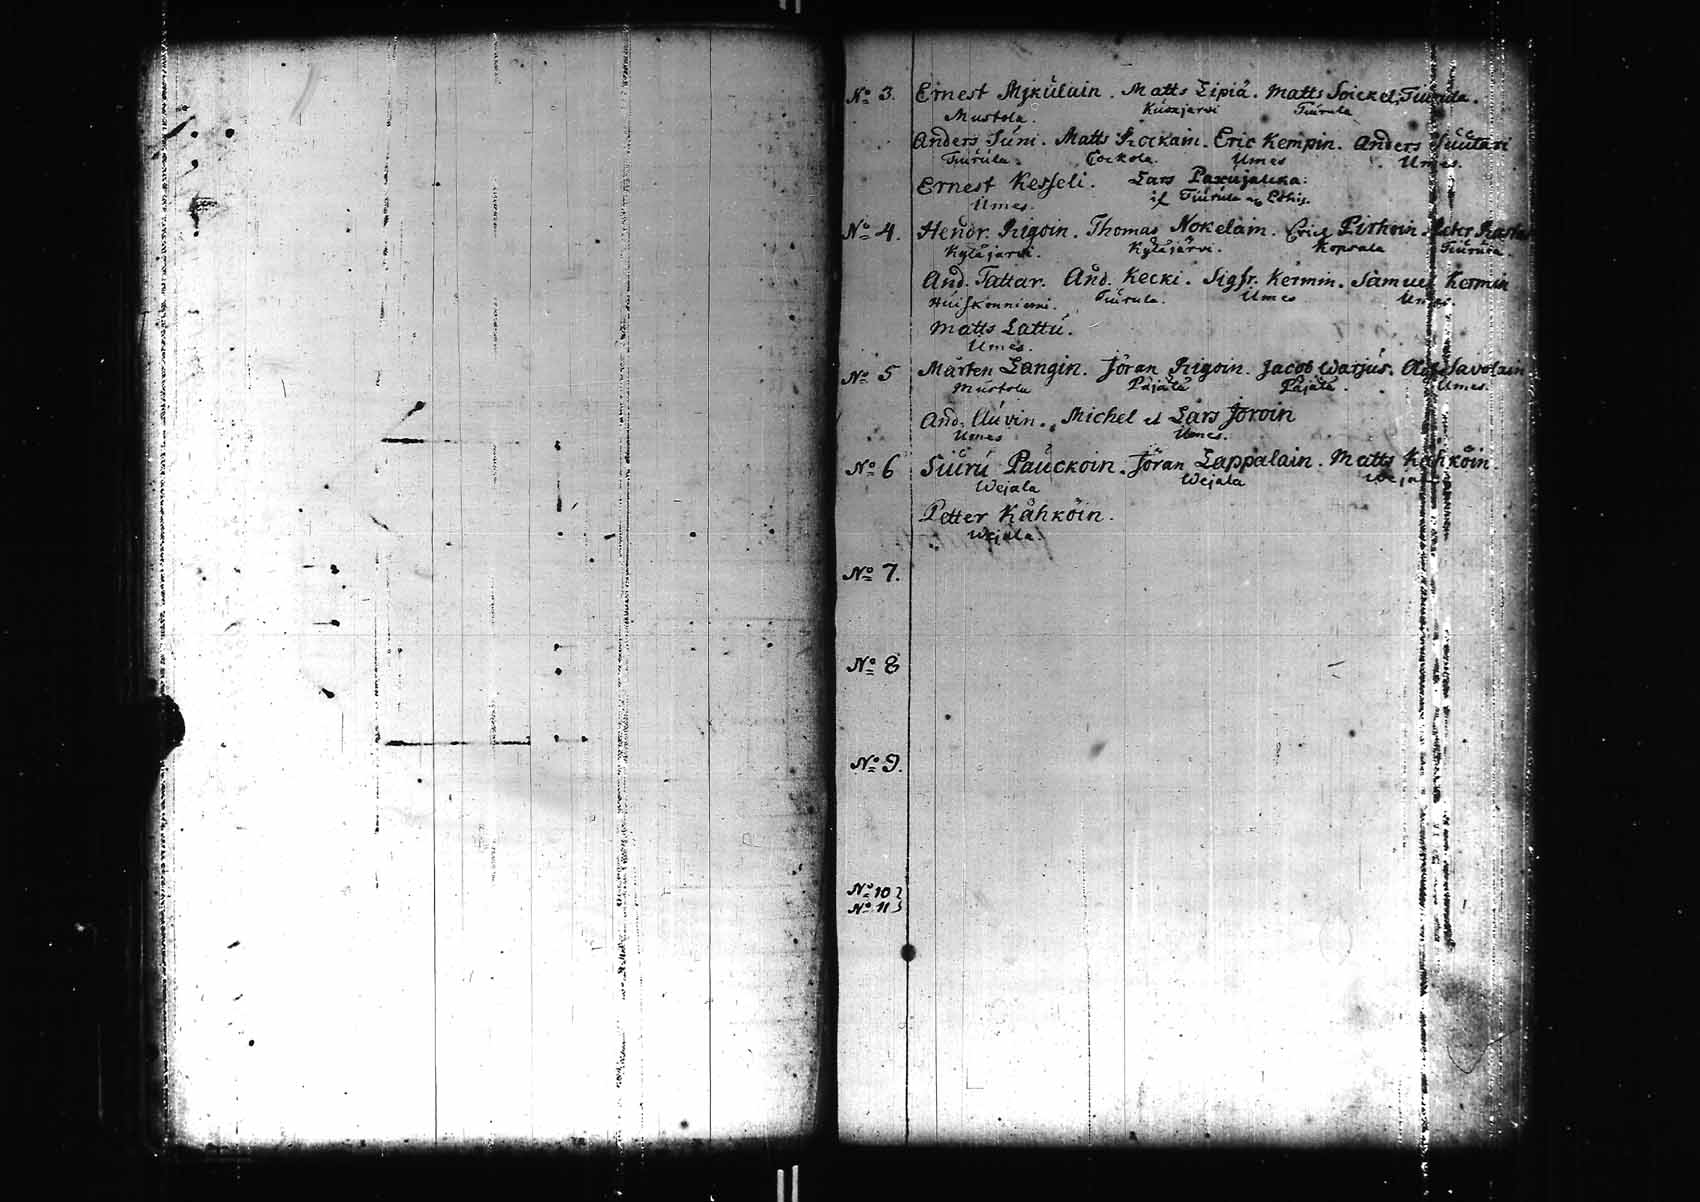 No 3. Ernest Mjkúlain. Matts Lipiä. Matts Soickel, Tiúrula.
Mustola. Kúsajärvi Tiúrula
Anders Súni. Matts Rockain. Eric Kempin. Anders Súútari
Tiúrula. Cockola. Umes Umes.
Ernest Kesseli. Lars Paxújalka.
Umes. if Tiúrula
No 4. Hendr. Rigoin. Thomas Nokelain. Eric Pirhoin. Petr
Kyläjärvi. Kyläjärvi. Koprala Tiúrula.
And. Tattar. And. Kecki. Sigfr. Kermin. Samuel Kermin
Húiskonniemi. Tiúrula. Umes Umes.
Matts Lattú.
Umes.
No 5 Mårten Langin. Jöran Rigoin. Jacob Warjús. Savolain
Mústola Pajala Pajala. Umes.
And. Aúvin. Michel et Lars Joroin
Umes Umes.
No 6 Siúrú Paúckoin. Jöran Lappalain. Matts Kähköin.
Wejala Wejala Wejala
Petter Kähköin.
Wejala.
No 7.
No 8
No 9.
No 10
No 11